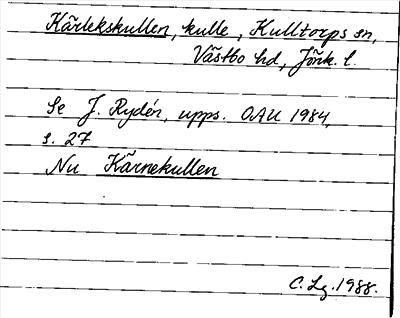 Kärlekskullen, kulle, Kulltorps sn,
Västbo hd, Jönk. l.
Se J. Rydén, upps. OAU 1984,
s. 27
Nu Kärnekullen
C. Lg. 1988.